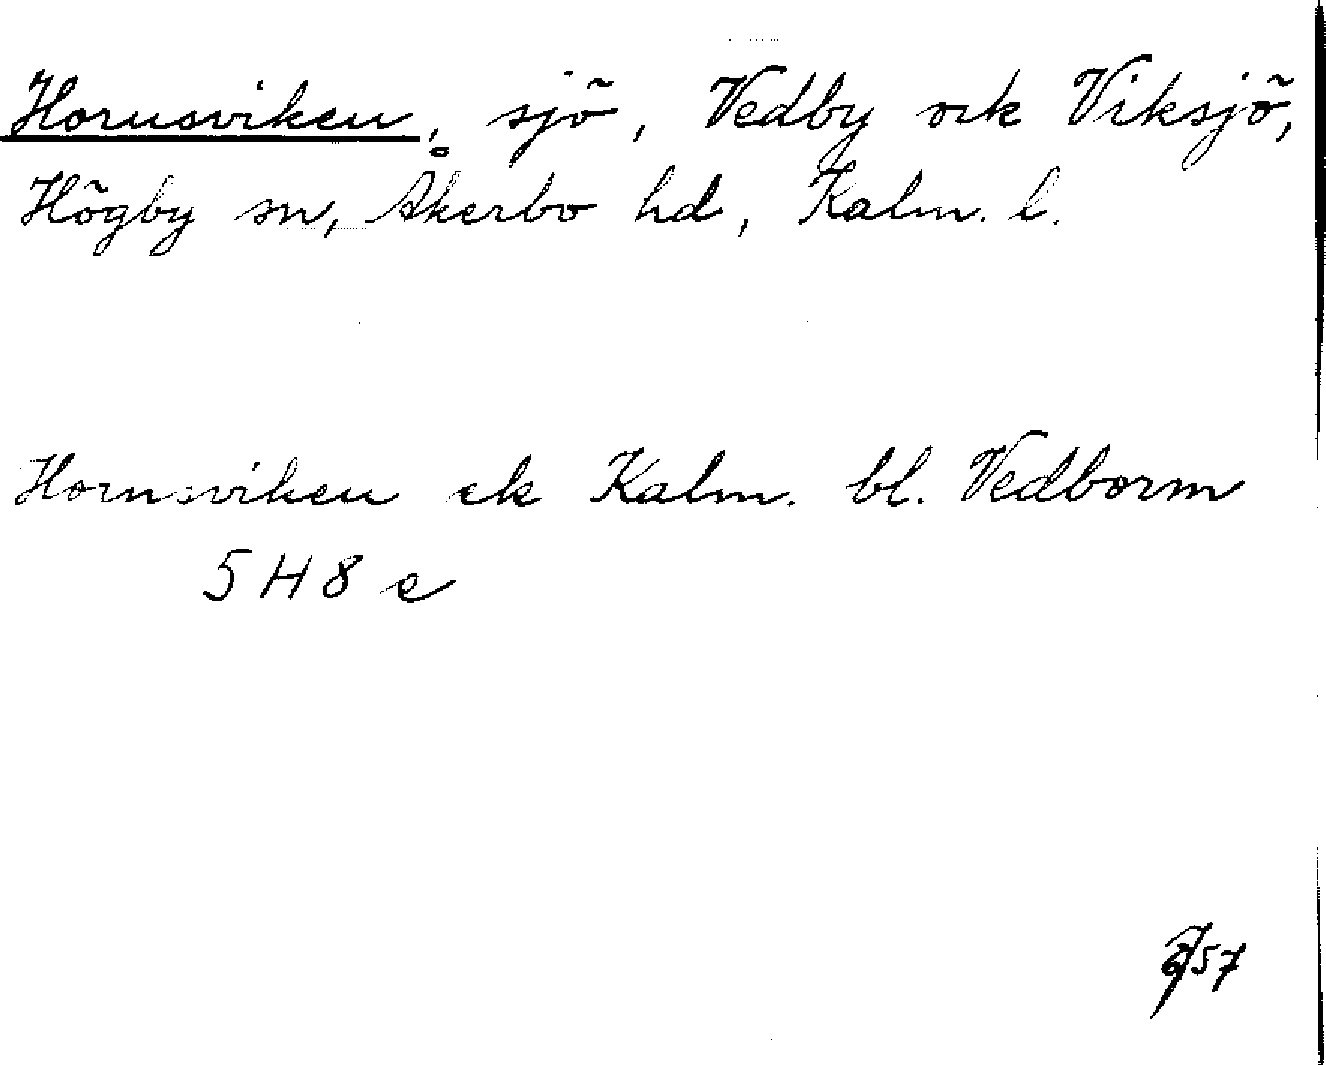 Hornsviken, sjö, Vedby ock Viksjö,
Högby sn, Åkerbo hd, Kalm. l.
Hornsviken ek Kalm. bl. Vedborm
5 H 8 e
57